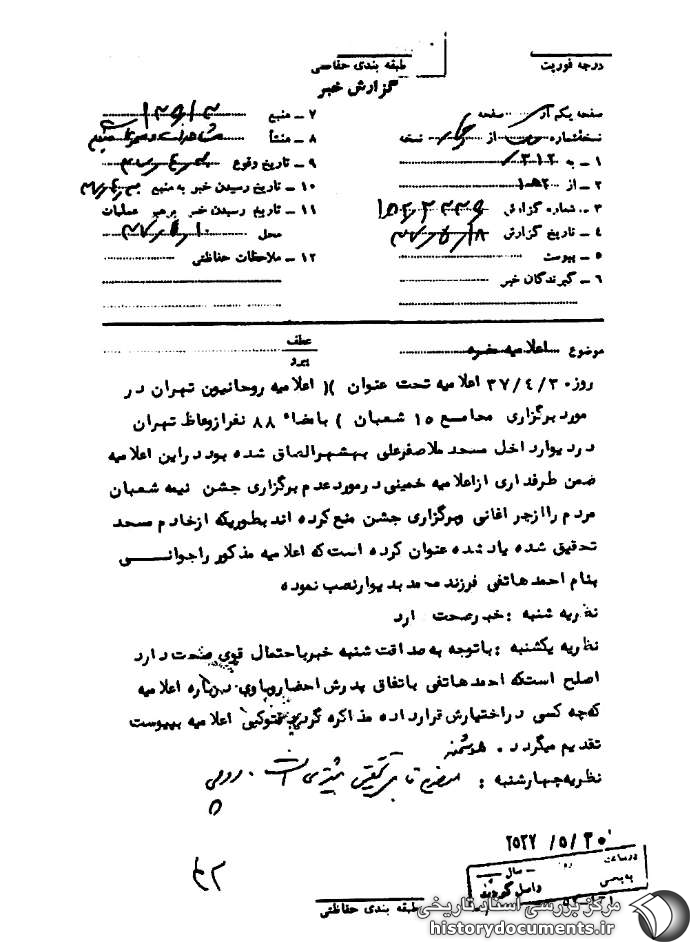 درجه فوریت
طبقه بندی حفاظتی
گزارش خبر
صفحه یکم از صفحه
نسخه شماره از نسخه
۱ ـ به ۳۱۲
۲ ـ از
۳ ـ شماره گزارش
۴ ـ تاریخ گزارش
۵ ـ پیوست
۶ ـ گیرندگان خبر
۷ ـ منبع
۸ ـ منشأ
۹ ـ تاریخ وقوع
۱۰ ـ تاریخ رسیدن خبر به منبع
۱۱ ـ تاریخ رسیدن خبر برهبر عملیات
محل
۱۲ ـ ملاحظات حفاظتی
موضوع اعلامیه مضره
عطف
پیرو
روز ۳۷/۴/۲۰ اعلامیه تحت عنوان )( اعلامیه روحانیون تهران در
مورد برگزاری مجامع ۱۵ شعبان ) بامضاء ۸۸ نفر از وعاظ تهران
در دیوار داخل مسجد ملاصفرعلی بهشهر الصاق شده بود در این اعلامیه
ضمن طرفداری از اعلامیه خمینی در مورد عدم برگزاری جشن نیمه شعبان
مردم را از چراغانی و برگزاری جشن منع کرده اند بطوریکه از خادم مسجد
تحقیق شده یاد شده عنوان کرده است که اعلامیه مذکور را جوانی
بنام احمد هاتفی فرزند محمد بدیوار نصب نموده
نظریه شنبه : خبر صحت دارد
نظریه یکشنبه : باتوجه به صداقت شنبه خبر باحتمال قوی صحت دارد
اصلح است که احمد هاتفی باتفاق پدرش احضار و با وی درباره اعلامیه
که چه کسی در اختیارش قرار داده مذاکره گردد فتوکپی اعلامیه بپیوست
تقدیم میگردد . هوشمند
نظریه چهارشنبه :
۲۵۳۷/۵/۲۰
در ساعت روز
سال
به بخش واصل گردید
طبقه بندی حفاظتی
مرکز بررسی اسناد تاریخی
historydocuments.ir